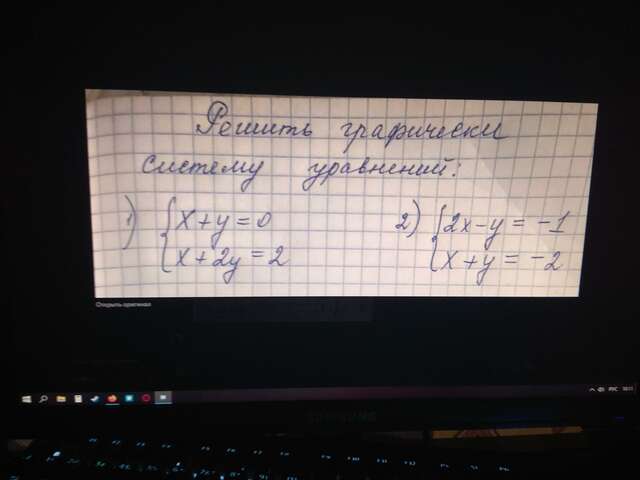 Решить графически
систему уравнений:
1) { x + y = 0
x + 2y = 2
2) { 2x - y = -1
x + y = -2
Открыть оригинал
РУС
SAMSUNG